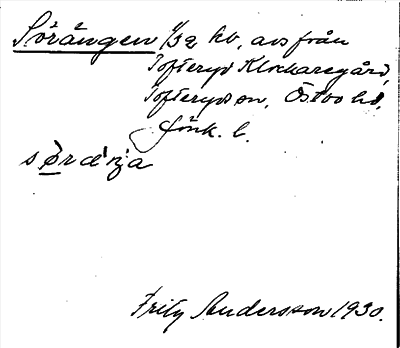 Sörängen 1/32 hv, avs från
Tofteryd Klockaregård,
Tofteryds sn, Östbo hd,
Jönk. l.
sø̀ræ'ŋa
Fritz Andersson 1930.